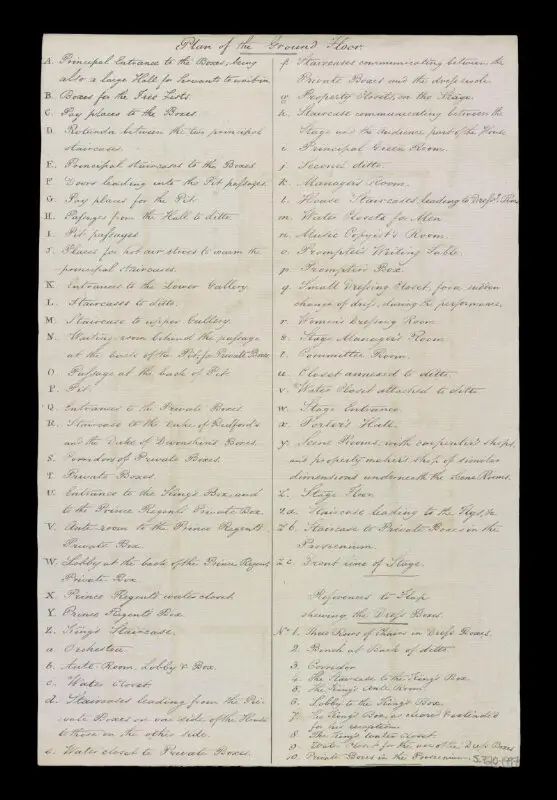 Plan of the Ground Floor.
A. Principal Entrance to the Boxes, being
also a large Hall for Servants to wait in
B. Boxes for the Free Lists.
C. Pay places to the Boxes.
D. Rotunda between the two principal
staircases.
E. Principal Staircases to the Boxes
F. Doors leading into the Pit passages.
G. Pay places for the Pit.
H. Passages from the Hall to ditto.
I. Pit passages
J. Places for hot air stoves to warm the
principal staircases.
K. Entrances to the Lower Gallery
L. Staircases to ditto.
M. Staircase to upper Gallery.
N. Waiting room behind the passage
at the back of the Pit, for Private Boxes.
O. Passage at the back of Pit
P. Pit.
Q. Entrances to the Private Boxes
R. Staircase to the Duke of Bedford's
and the Duke of Devonshire's Boxes.
S. Corridors of Private Boxes.
T. Private Boxes.
U. Entrance to the King's Box, and
to the Prince Regent's Private Box.
V. Ante room to the Prince Regent's
Private Box.
W. Lobby at the back of the Prince Regent's
Private Box
X. Prince Regent's water closet
Y. Prince Regent's Box.
Z. King's Staircase.
a. Orchestra
b. Ante-Room, Lobby & Box.
c. Water closet
d. Staircases leading from the Pri-
vate Boxes on one side of the House
to those on the other side.
e. Water closet to Private Boxes.
f. Staircases communicating between the
Private Boxes and the dress circle.
g. Property Closets, on the Stage.
h. Staircase communicating between the
Stage and the Audience part of the House
i. Principal Green Room.
j. Second ditto.
k. Manager's Room.
l. House Staircases leading to Dress.g Rooms
m. Water Closets for Men
n. Music Copyist's Room.
o. Prompter's Writing Table.
p. Prompter's Box
q. Small Dressing Closet for a sudden
change of dress, during the performance.
r. Women's Dressing Room
s. Stage Manager's Room.
t. Committee Room.
u. Closet annexed to ditto.
v. Water Closet attached to ditto
w. Stage Entrance.
x. Porter's Hall.
y. Scene Rooms, with carpenter's shops,
and property maker's shop of similar
dimensions underneath the Scene Rooms.
Z. Stage Floor.
Z a. Staircase leading to the Flys, &c
Z b. Staircase to Private Boxes in the
Proscenium.
Z c. Front line of Stage.
References to
shewing the Dress Boxes.
No 1. Three Rows of Chairs in Dress Boxes.
2. Bench at Back of ditto.
3. Corridor
4. The Staircase to the King's Box.
5. The King's Ante Room.
6. Lobby to the King's Box.
7. The King's Box, as cleared & extended
for his reception.
8. The King's water closet
9. Water Closet for the use of the Dress Boxes
10. Private Boxes in the Proscenium.